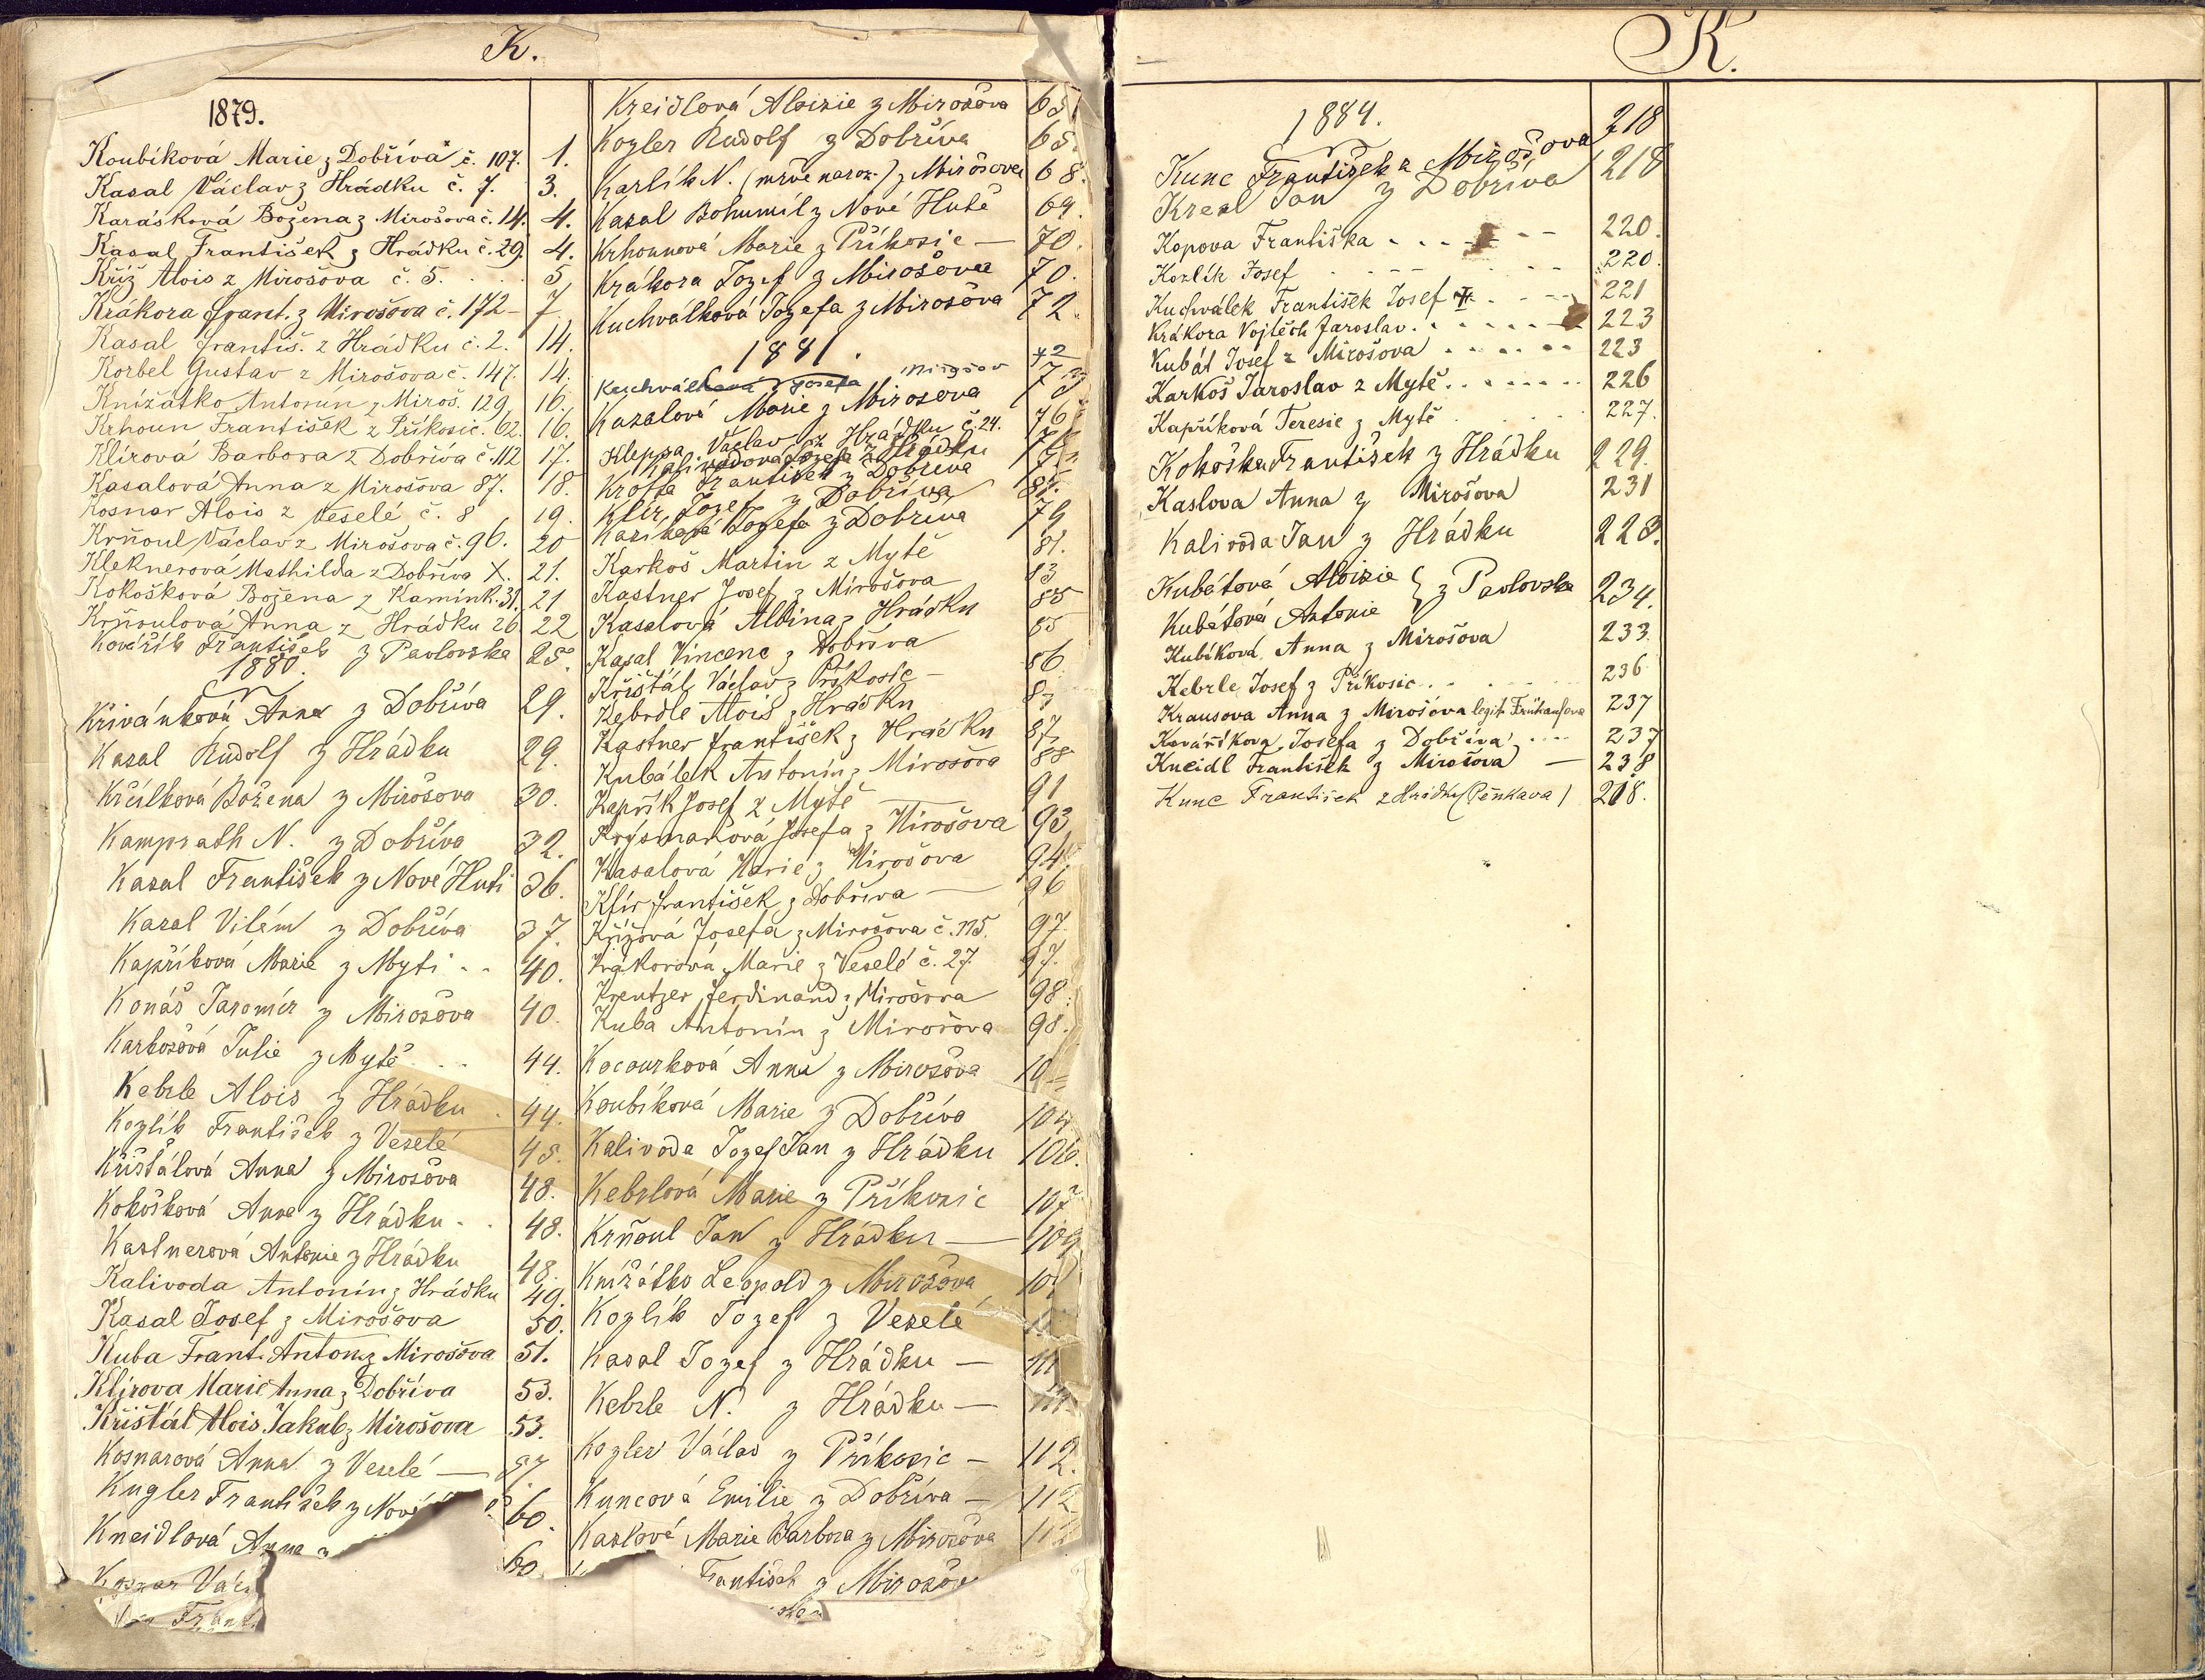 K.
1879.
Koubíková Marie z Dobřívá č. 107. 1.
Kasal Václav z Hrádku č. 7. 3.
Karásková Božena z Mirošova č. 14. 4.
Kasal František z Hrádku č. 29. 4.
Kříž Alois z Mirošova č. 5. 5
Krákora Frant. z Mirošova č. 172 – 7
Kasal Františ. z Hrádku č. 2. 14.
Korbel Gustav z Mirošova č. 147. 14.
Knížátko Antonín z Miroš. 129 16.
Krhoun František z Příkosic. 62. 16.
Klírová Barbora z Dobříva č. 112 17.
Kasalová Anna z Mirošova 87. 18.
Kosnar Alois z Veselé č. 8 19.
Krňoul Václav z Mirošova č. 96. 20
Kleknerova Mathilda z Dobříva X. 21.
Kokošková Božena z Kamínk. 31. 21
Krňoulová Anna z Hrádku 26. 22
Kovářík František z Pavlovska 25.
1880.
Křivánková Anna z Dobříva 29.
Kasal Rudolf z Hrádku 29.
Křčílková Božena z Mirošova 30.
Kamprath N. z Dobříva 32.
Kasal František z Nové Huti 36.
Kasal Vilém z Dobříva 37.
Kapříková Marie z Myti . . 40.
Konáš Jaromír z Mirošova 40.
Karkošová Julie z Mytě . . . 44.
Kebrle Alois z Hrádku . 44.
Kozlík František z Veselé 45.
Křišťálová Anna z Mirošova 48.
Kokošková Anna z Hrádku . . 48.
Kastnerová Antonie z Hrádku 48.
Kalivoda Antonín z Hrádku 49.
Kasal Josef z Mirošova 50.
Kuba Frant. Anton. z Mirošova 51.
Klírova Marie Anna z Dobříva 53.
Křišťál Alois Jakub z Mirošova 53.
Kosnarová Anna z Veselé — 57.
Kugler František z Nové 60.
Kneidlová Anna z 60
Kosnar Vác
Frant
Kreidlová Aloisie z Mirošova 65
Kozler Rudolf z Dobříva 65.
Karlík N. (mrtvě naroz.) z Mirošova 68.
Kasal Bohumil z Nové Hutě 69.
Krhounová Marie z Příkosic — 70.
Krákora Jozef z Mirošova 70.
Kuchválková Jozefa z Mirošova 72.
1881.
Kuchválková Josefa Mirošov 72
Kasalová Marie z Mirošova 73
Kleppa Václav z Hrádku č. 24. 76
Kalivodova Josefa z Hrádku
Krofta František z Dobříva
Klír Jozef z Dobříva
Kasíková Jozefa z Dobříva 79
Karkoš Martin z Mytě 81.
Kastner Josef z Mirošova 83
Kasalová Albina z Hrádku 85
Kasal Vincenc z Dobříva 85
Křišťál Václav z Příkosic – 86
Kebrdle Alois z Hrádku 87
Kastner František z Hrádku 87
Kubálek Antonín z Mirošova 88
Kapřík Josef z Mytě — 91
Krysmanová Josefa z Mirošova 93
Kasalová Marie z Mirošova 94
Klír František z Dobříva — 96
Křížová Josefa z Mirošova č. 115. 97.
Krákorová Marie z Veselé č. 27. 97.
Kreutzer Ferdinand z Mirošova 98.
Kuba Antonín z Mirošova 98.
Kocourková Anna z Mirošova 10
Koubíková Marie z Dobříva 104
Kalivoda Jozef Jan z Hrádku 106.
Kebrlová Marie z Příkosic 107
Krňoul Jan z Hrádku — 109
Knížátko Leopold z Mirošova 10
Kozlík Jozef z Veselé
Kasal Jozef z Hrádku — 111
Kebrle N. z Hrádku — 111.
Kozler Václav z Příkosic – 112.
Kuncová Emilie z Dobříva – 112
Kaslové Marie Barbora z Mirošova 11
František z Mirošov
K.
1884.
Kunc František z Mirošova 218
Kreal Jan z Dobříva 218
Kopova Františka . . . . – – 220.
Kozlík Josef . . . . . . 220.
Kuchválek František Josef II. . . . 221
Krákora Vojtěch Jaroslav . . . . . . 223
Kubát Josef z Mirošova . . . . . 223
Karkoš Jaroslav z Mytě . . . . . . . 226
Kapříková Teresie z Mytě . . . 227.
Kokoška František z Hrádku 229.
Kaslova Anna z Mirošova 231
Kalivoda Jan z Hrádku 228.
Kubátová Aloisie } z Pavlovska 234.
Kubátová Antonie
Kubíková Anna z Mirošova 233.
Kebrle Josef z Příkosic . . . . . . 236
Krausova Anna z Mirošova legit. Frühaufova 237
Kovaříkova Josefa z Dobříva . . . . 237
Kneidl František z Mirošova — 238
Kunc František z Hrádku (Pěnkava) 218.